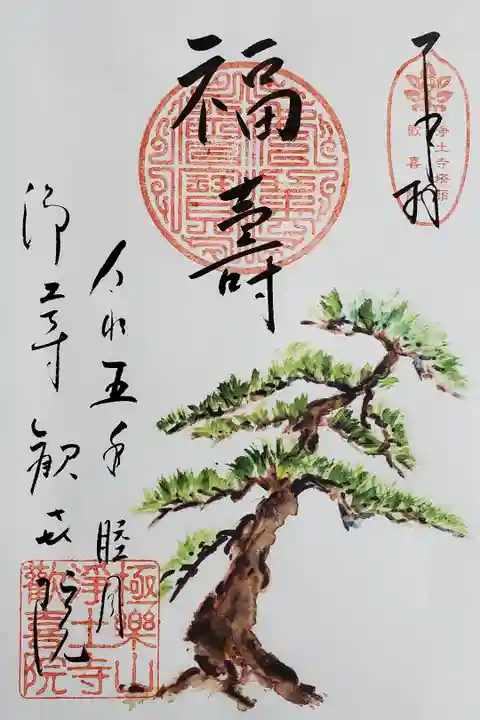 奉拝
浄土寺塔頭
歓喜
福壽
令和五年 睦月
浄土寺 歓喜院
極樂山
浄土寺
歡喜院